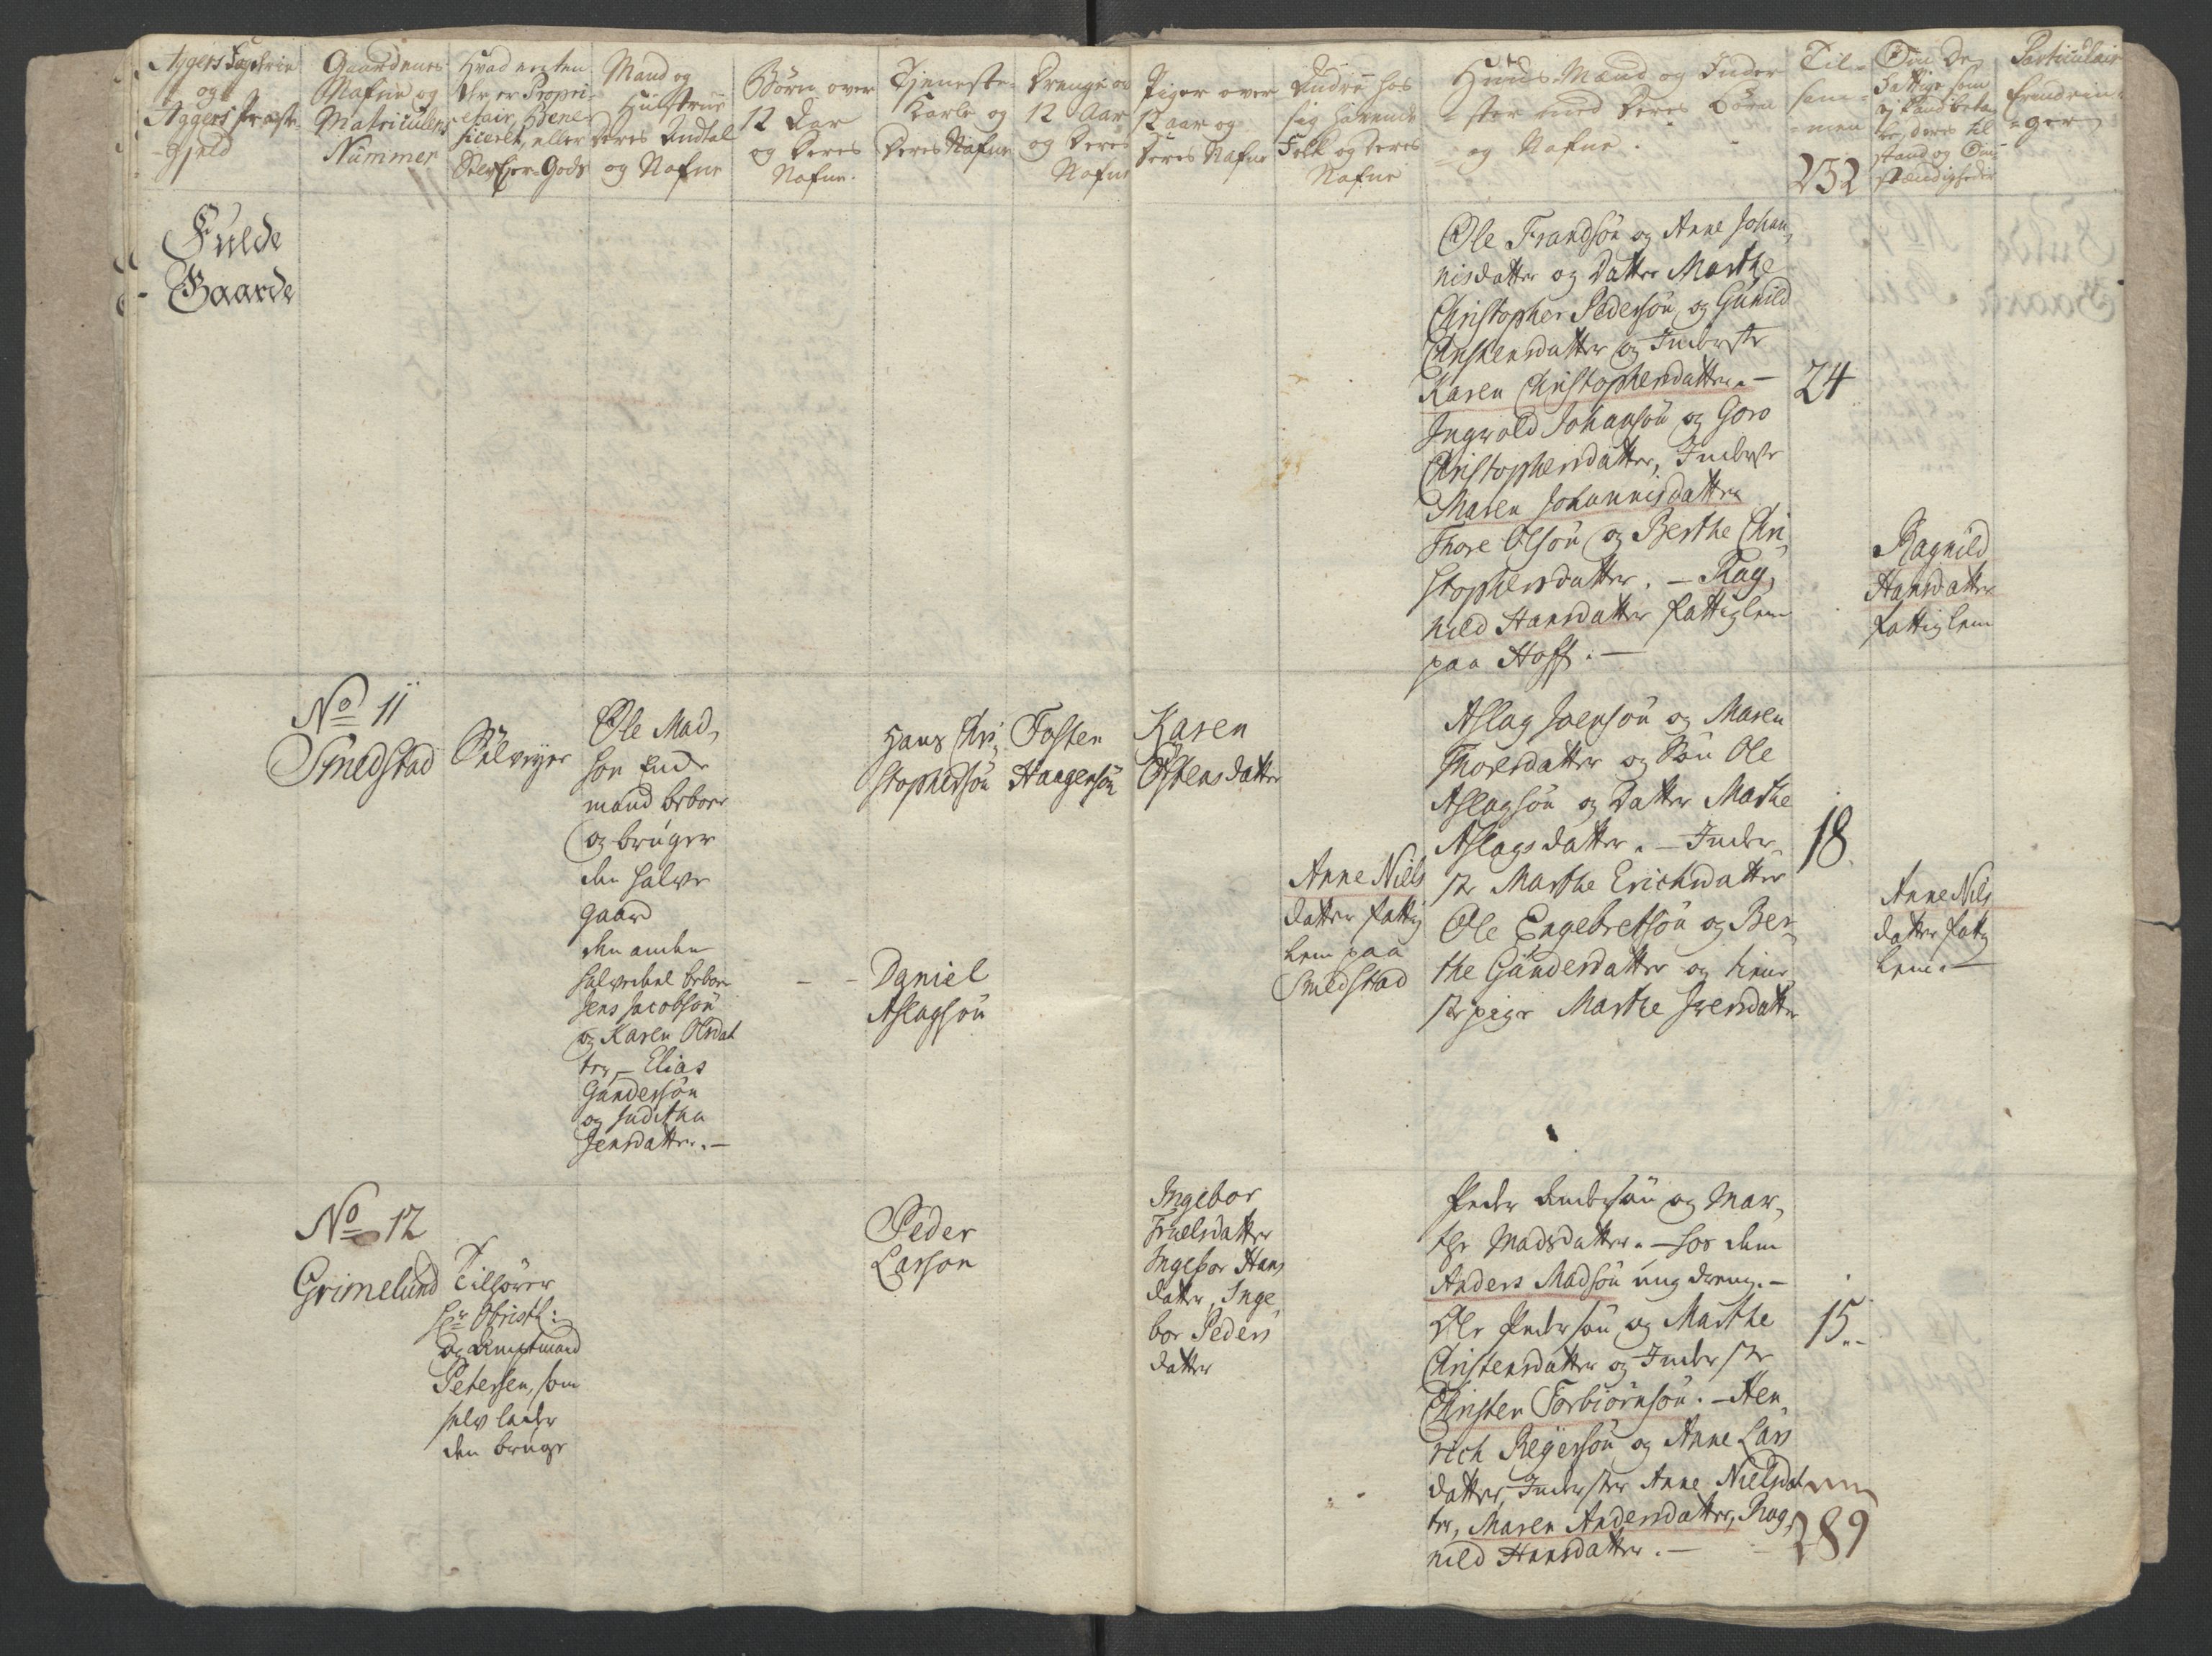 Aggers Fogderie
og
Aggers Præste-
-gjeld
Gaardenes
Nafne og
Matriculens
Nummer
Hvad enten
de er Propri-
-etair, Bene-
ficeret, eller
Selv Ejer-Gods
Mand og
Hustrue
deres Andtal
og Nafne
Børn over
12 Aar
og deres
Nafne.
Tjeneste-
Karle og
deres Nafne
Drenge ov
12 Aar
og deres
Nafne
Piger over
12 aar og
deres Nafne
Andre hos
sig havende
Folk og deres
Nafne
Huus-Mænd og Inder-
-ster med deres Børn
og Nafne.
Til-
sam-
-men
232
Om de
Fattige som
ej kand beta-
le, deres til
stand og Om-
stændigheder
Particulair
Erindrin-
-ger
Fulde
Gaarde
Ole Frandsøn og Anne Johan,
nisdatter og Datter Marthe
Christopher Pedersøn og Gunild
Christensdatter og Inderste
Karen Christophersdatter. -
Ingvold Johansøn og Goro
Christophersdatter, Inderste
Maren Johannisdatter
Thore Olsøn og Berthe Chri,
stophersdatter. - Rag,
nild Hansdatter fattiglem
paa Hoff. -
24
Ragnild
Hansdatter
fattiglem
No 11
Smedstad
Selvejer
Ole Mad,
søn Enke
mand beboer
og bruger
den halve
gaard
den anden
halvedeel beboer
Jens Jacobsøn
og Karen Olsdat
ter, - Elias
Gundersøn
og Juditha
Jensdatter. -
Hans Chri,
stophersøn
- - Daniel
Aslagsøn
Tosten
Haagensøn
Karen
Østensdatter
Anne Niels
datter fattig
lem paa
Smedstad
Aslag Joensøn og Maren
Thoresdatter og Søn Ole
Aslagsøn og Datter Marthe
Aslagsdatter. - Inder,
ste Marthe Erichsdatter
Ole Engebretsøn og Ber,
the Gundersdatter og tiene,
ste pige Marthe Iversdatter
18.
Anne Niels
datter fattig
lem. -
No 12
Grimelund
Tilhører
Hr Obristl:
og Amptmand
Petersen, som
selv lader
den bruge
Peder
Larson
Ingebor
Truelsdatter
Ingebor Hans
datter, Inge,
bor Peders
datter
Peder Andersøn og Mar,
the Madsdatter. - hos dem
Anders Madsøn ung dreng. -
Ole Pedersøn og Marthe
Christensdatter og Inderste
Christen Torbiørnsøn. - Hen,
rich Regersøn og Anne Lars
datter, Inderster Anne Nielsdat
ter, Maren Andersdatter, Rag,
nild Hansdatter. -
15.
289